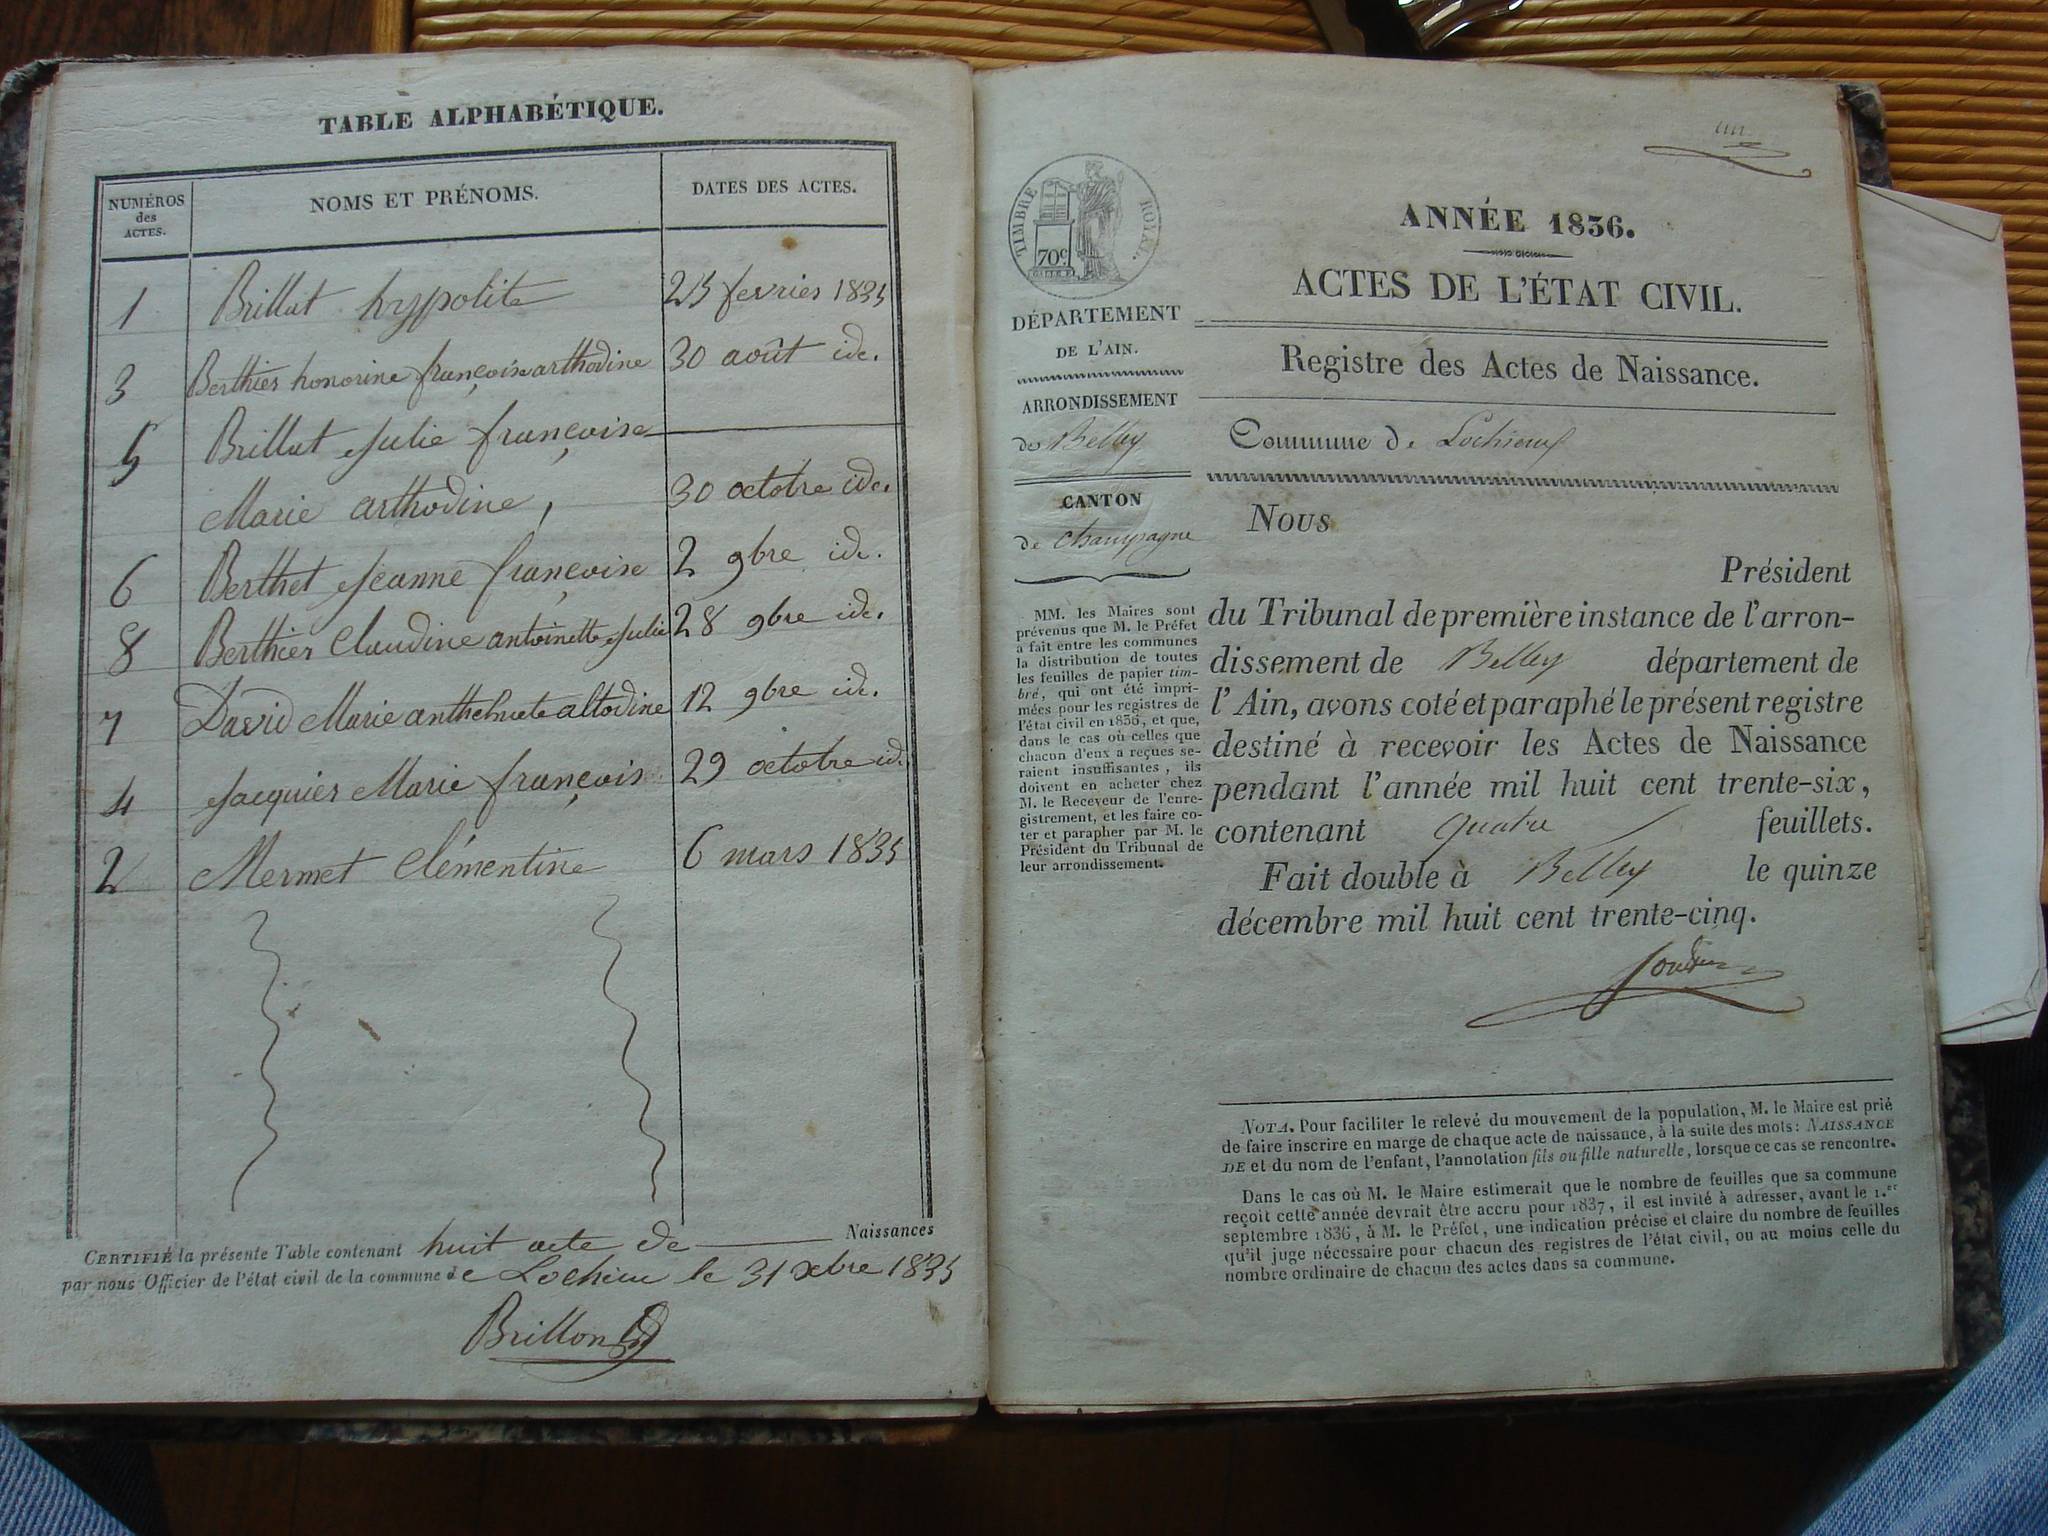 TABLE ALPHABÉTIQUE.
NUMÉROS
des
ACTES.
NOMS ET PRÉNOMS.
DATES DES ACTES.
1 Brillat hyppolite 25 fevrier 1835
3 Berthier honorine françoise arthodine 30 août id.
5 Brillat Julie françoise
Marie arthodine, 30 octobre id.
6 Berthet Jeanne françoise 2 9bre id.
8 Berthier Claudine antoinette Julie 28 9bre id.
7 David Marie anthelmete altodine 12 9bre id.
4 Jacquier Marie françoise 29 octobre id.
2 Mermet Clémentine 6 mars 1835
CERTIFIÉ la présente Table contenant huit acte de Naissances
par nous Officier de l'état civil de la commune de Lochieu le 31 xbre 1835
Brillon
un
TIMBRE ROYAL.
70c
ANNÉE 1836.
ACTES DE L'ÉTAT CIVIL.
DÉPARTEMENT
DE L'AIN.
ARRONDISSEMENT
de Belley
CANTON
de Champagne
MM. les Maires sont
prévenus que M. le Préfet
a fait entre les communes
la distribution de toutes
les feuilles de papier tim-
bré, qui ont été impri-
mées pour les registres de
l'état civil en 1836, et que,
dans le cas où celles que
chacun d'eux a reçues se-
raient insuffisantes, ils
doivent en acheter chez
M. le Receveur de l'enre-
gistrement, et les faire co-
ter et parapher par M. le
Président du Tribunal de
leur arrondissement.
Registre des Actes de Naissance.
Commune de Lochieux
Nous
Président
du Tribunal de première instance de l'arron-
dissement de Belley département de
l'Ain, avons coté et paraphé le présent registre
destiné à recevoir les Actes de Naissance
pendant l'année mil huit cent trente-six,
contenant quatre feuillets.
Fait double à Belley le quinze
décembre mil huit cent trente-cinq.
NOTA. Pour faciliter le relevé du mouvement de la population, M. le Maire est prié
de faire inscrire en marge de chaque acte de naissance, à la suite des mots: NAISSANCE
DE et du nom de l'enfant, l'annotation fils ou fille naturelle, lorsque ce cas se rencontre.
Dans le cas où M. le Maire estimerait que le nombre de feuilles que sa commune
reçoit cette année devrait être accru pour 1837, il est invité à adresser, avant le 1.er
septembre 1836, à M. le Préfet, une indication précise et claire du nombre de feuilles
qu'il juge nécessaire pour chacun des registres de l'état civil, ou au moins celle du
nombre ordinaire de chacun des actes dans sa commune.